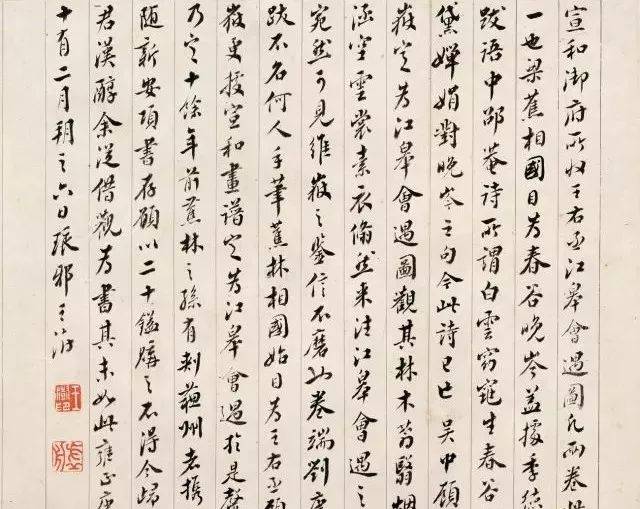 宣和御府所收王右丞江皋會遇圖凡兩卷此
一也梁蕉相國目為春谷晚岑蓋據季德
跋語中邵菴詩所謂白雲窈窕生春谷
黛嬋娟對晚岑之句今此詩已亡吳中顧
維嶽定為江皋會遇圖觀其林木蓊翳烟
涵空雲裳素衣翛然來往江皋會遇之
宛然可見維嶽之鑒信不磨山卷端劉
跋不名何人手筆蕉林相國始目為王右丞顧
嶽更援宣和畫譜定為江皋會遇於是聲
乃定十餘年前蕉林之孫有刺蘇州者攜
隨新安項書存願以二十鎰購之不得今歸
君漢醇余從借觀為書其末如此雍正庚
十有二月朔之六日琅邪王澍